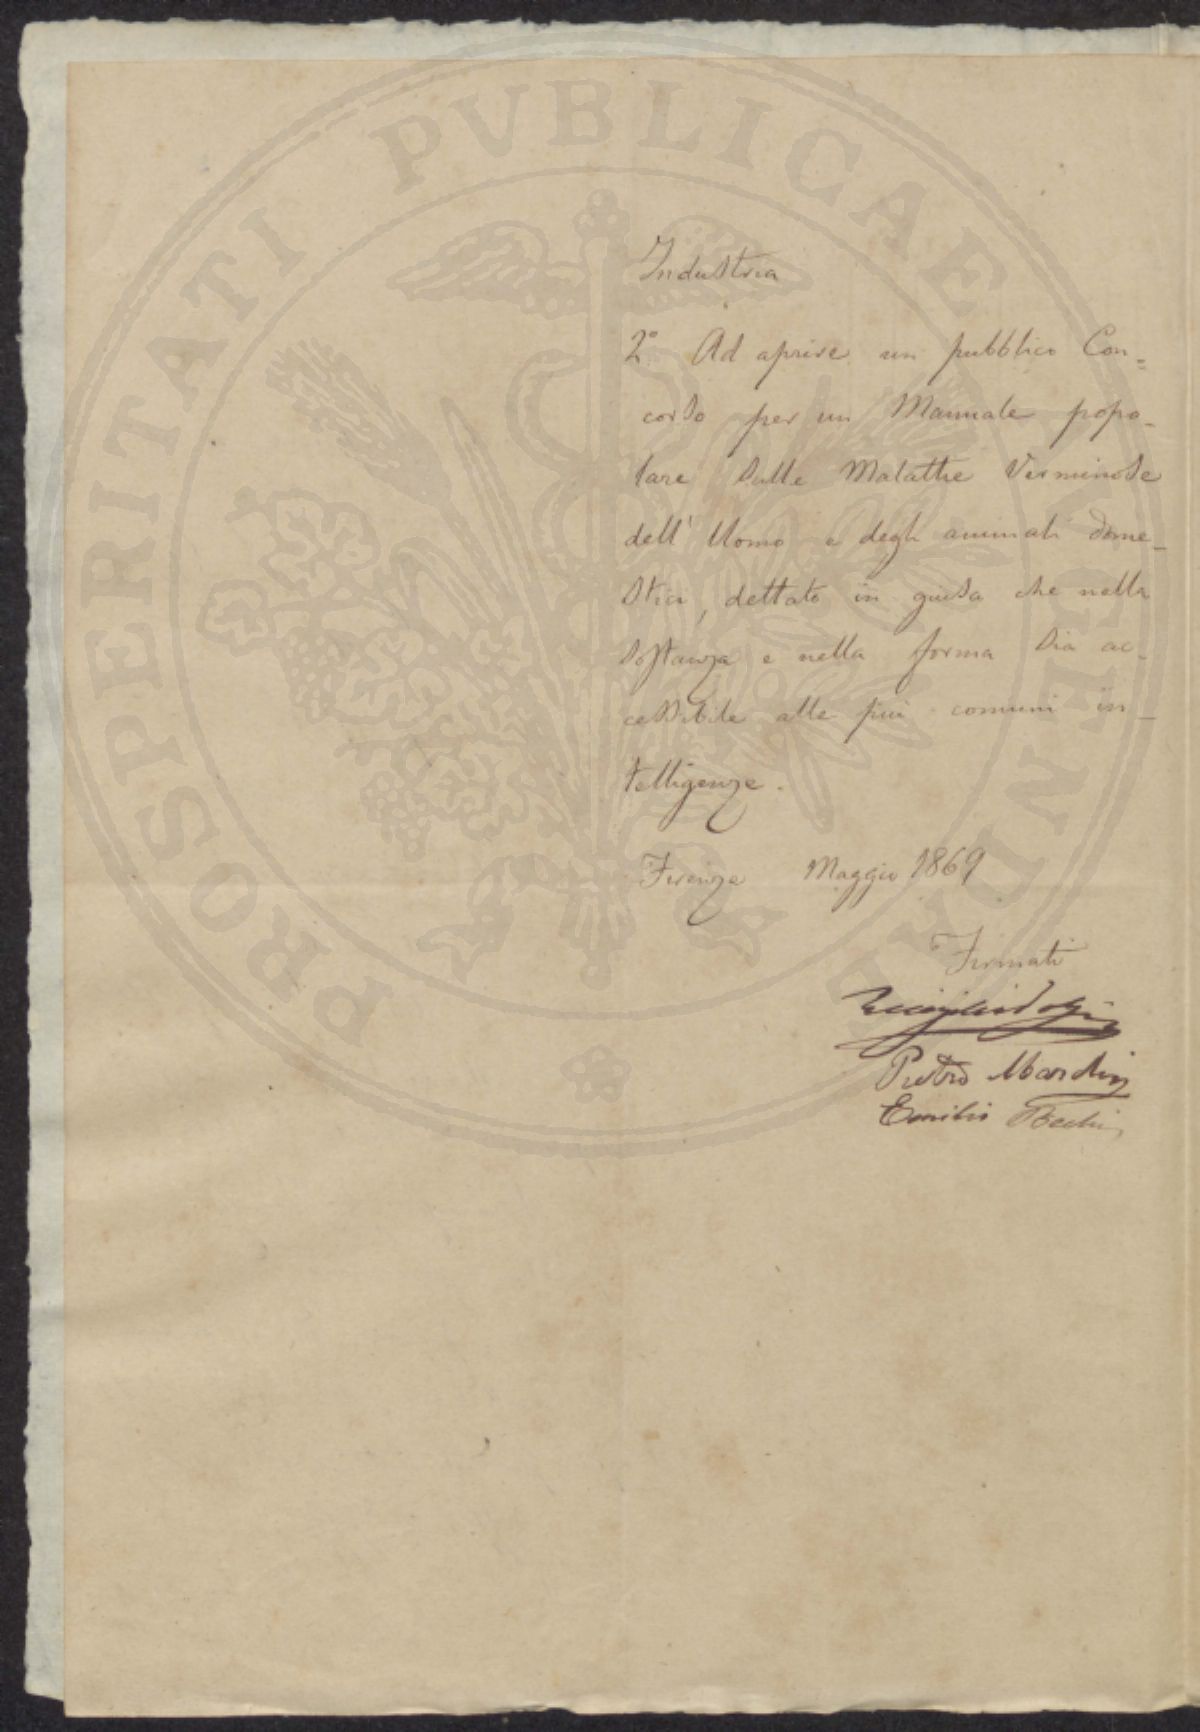 PROSPERITATI PVBLICAE AVGENDAE
Industria
2.° Ad aprire un pubblico Con=
corso per un Manuale popo-
lare sulle Malattie Verminose
dell' Uomo e degli animali dome-
stici, dettato in guisa che nella
sostanza e nella forma sia ac-
cessibile alle più comuni in-
telligenze.
Firenze Maggio 1869
Firmati
Pietro
Emilio Bechi